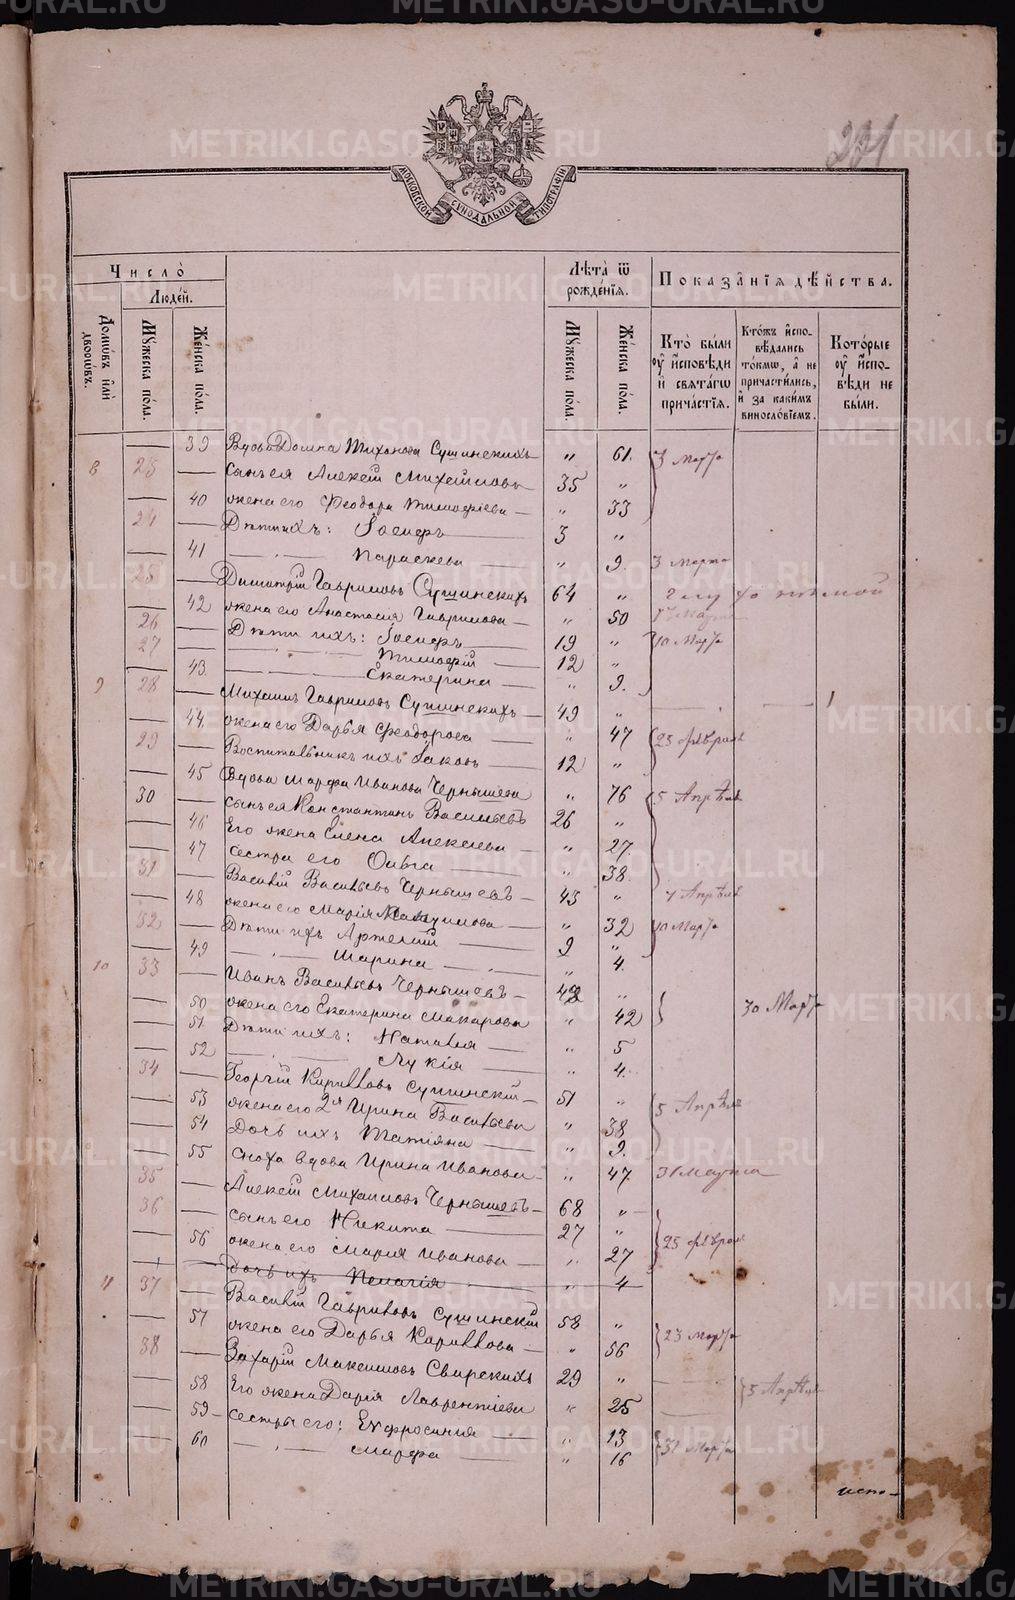 METRIKI.GASO-URAL.RU
231
МОСКОВСКОЙ СѴНОДАЛЬНОЙ ТИПОГРАФІИ
Число̀
Людéй.
Домѡ́въ и҆лѝ дворѡ́въ.
Мꙋ́жеска по́ла.
Же́нска по́ла.
Лѣ́та ѿ рожде́нїѧ.
Мꙋ́жеска по́ла.
Же́нска по́ла.
Показа́нїѧ дѣ́йства.
Кто̀ бы́ли ᲂу҆ и҆́сповѣди и҆ свѧта́гѡ прича́стїѧ.
Кто́жъ и҆спо-вѣ́дались то́кмѡ, а҆ не причасти́лись, и҆ за каки́мъ винослóвїемъ.
Кото́рые ᲂу҆ и҆́спо-вѣди не бы́ли.
39 Вдова Домна Тиханова Сушинскихъ „ 61. 3 Марта
8 23 Сынъ ея Алексій Михейловъ 35 „
40 жена его Феодора Тимофіева „ 33
24 Дѣти ихъ: Іосифъ 3 „
41 Параскева „ 9. 3 Марта
25 Димитрій Гавриловъ Сушинскихъ 64 „ глухо нѣмой
42 жена его Анастасія Гаврилова „ 50
26 Дѣти ихъ: Іосифъ 19 „ 10 Марта
27 Тимофій 12 „
43. Екатерина „ 9.
9 28 Михаилъ Гавриловъ Сушинскихъ 49 „ 1
44 жена его Дарья Феодорова „ 47 25 Февраля
29 Воспитальникъ ихъ Іаковъ 12 „
45 Вдова Марфа Иванова Чернышева „ 76 5 Апрѣля
30 сынъ ея Константинъ Васильевъ 26 „
46 Его жена Елена Алексеева „ 27
47 сестра его Ольга „ 38.
31 Василій Васильевъ Чернышевъ 43 „ 7 Апрѣля
48 жена его Марія Максимова „ 32 10 Марта
32 Дѣти ихъ Артемій 9 „
49 Марина „ 4.
10 33 Иванъ Васильевъ Чернышовъ 42 „ 30 Марта
50 жена его Екатерина Макарова „ 42
51 Дѣти ихъ: Наталія „ 5
52 Лукія „ 4.
34 Георгій Кирилловъ Сушинскій 51 „ 5 Апрѣля
53 жена его 2я Ирина Васильева „ 38
54 Дочь ихъ Татіяна „ 9.
55 Сноха вдова Ирина Иванова „ 47 31 Марта
35 Алексій Михаиловъ Чернышевъ 68 „
36 сынъ его Никита 27 „ 25 Феврал
56 жена его Марія Иванова „ 27
Дочь ихъ Пелагія „ 4
11 37 Василій Гавриловъ Сушинскій 58 „ 23 Марта
57 жена его Дарья Карилова „ 56
38 Захарій Максимовъ Свирскихъ 29 „ 5 Апрѣля
58 Его жена Дарія Лаврентіева „ 25
59 Сестры его: Ефросинія „ 13 31 Марта
60 Марфа „ 16
испо-